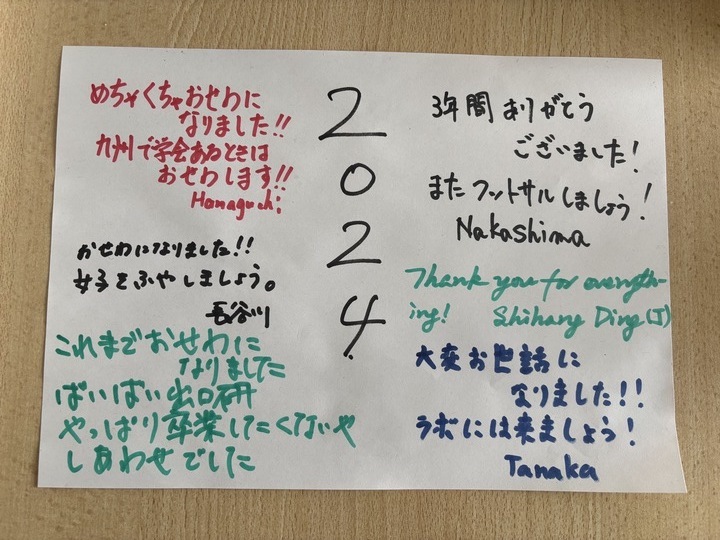 めちゃくちゃおせわに
なりました!!
九州で学会あるときは
おせわします!!
Hamaguchi
おせわになりました!!
女子をふやしましょう。
長谷川
これまでおせわに
なりました
ばいばい出口研
やっぱり卒業したくないや
しあわせでした
2
0
2
4
3年間ありがとう
ございました!
またフットサルしましょう!
Nakashima
Thank you for everyth-
ing! Shihang Ding(J)
大変お世話に
なりました!!
ラボには来ましょう!
Tanaka